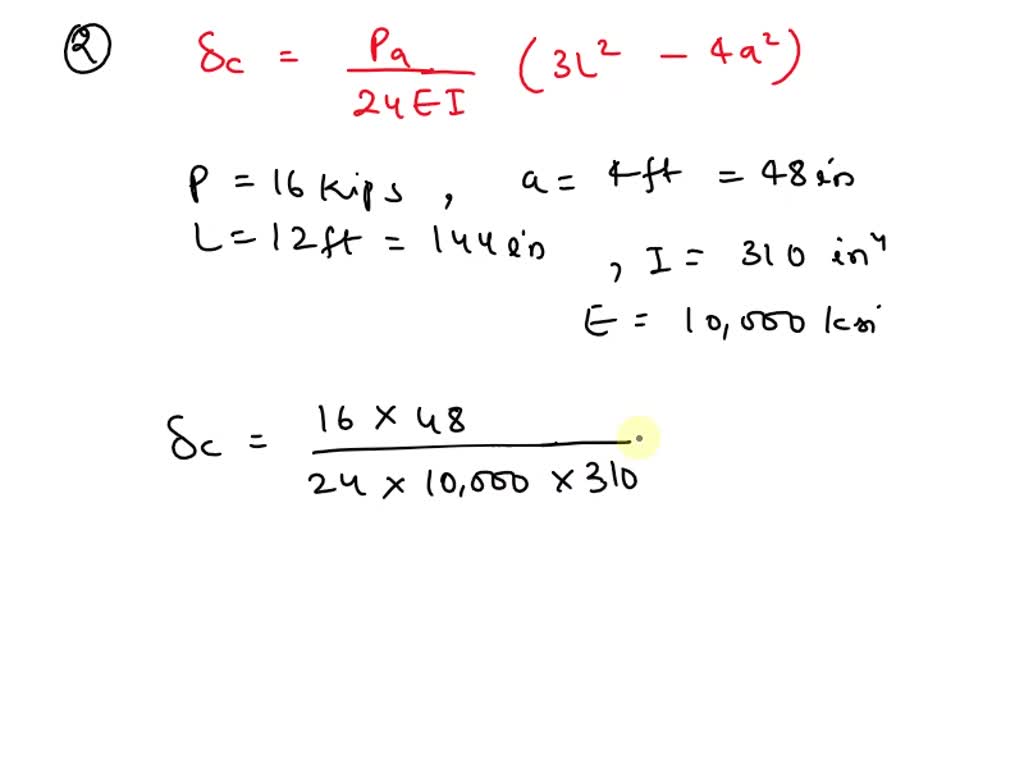 2 δc = Pa / 24EI (3L² - 4a²)
P = 16 kips, a = 4ft = 48in
L = 12ft = 144in, I = 310 in⁴
E = 10,000 ksi
δc = 16 × 48 / 24 × 10,000 × 310